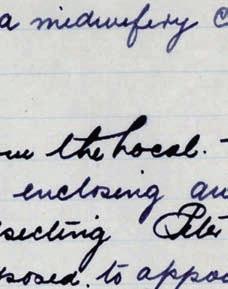 a midwifery
the Local.
enclosing
secting Peter
posed. to appoo